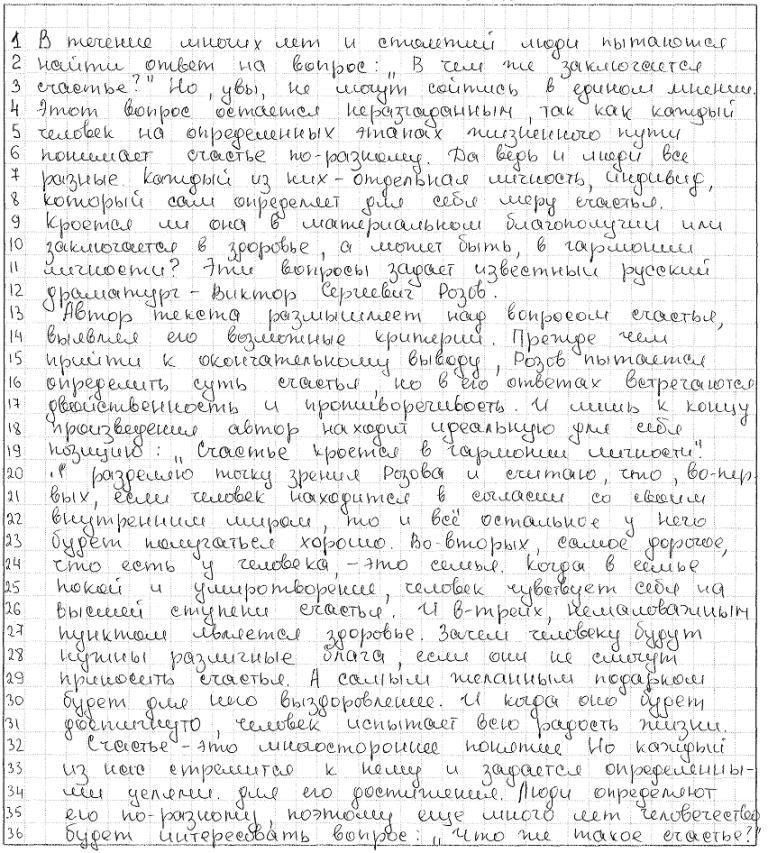 1 В течение многих лет и столетий люди пытаются
2 найти ответ на вопрос: „В чем же заключается
3 счастье?" Но, увы, не могут сойтись в едином мнении.
4 Этот вопрос остается неразгаданным, так как каждый
5 человек на определенных этапах жизненного пути
6 понимает счастье по-разному. Да ведь и люди все
7 разные. Каждый из них - отдельная личность, индивид,
8 который сам определяет для себя меру счастья.
9 Кроется ли она в материальном благополучии или
10 заключается в здоровье, а может быть, в гармонии
11 личности? Эти вопросы задает известный русский
12 драматург - Виктор Сергеевич Розов.
13 Автор текста размышляет над вопросом счастья,
14 выявляя его возможные критерии. Прежде чем
15 прийти к окончательному выводу, Розов пытается
16 определить суть счастья, но в его ответах встречаются
17 двойственность и противоречивость. И лишь к концу
18 произведения автор находит идеальную для себя
19 позицию: „Счастье кроется в гармонии личности".
20 Я разделяю точку зрения Розова и считаю, что, во-пер-
21 вых, если человек находится в согласии со своим
22 внутренним миром, то и всё остальное у него
23 будет получаться хорошо. Во-вторых, самое дорогое,
24 что есть у человека, - это семья. Когда в семье
25 покой и умиротворение, человек чувствует себя на
26 высшей ступени счастья. И в-треих, немаловажным
27 пунктом является здоровье. Зачем человеку будут
28 нужны различные блага, если они не смогут
29 приносить счастья. А самым желанным подарком
30 будет для него выздоровление. И когда оно будет
31 достигнуто, человек испытает всю радость жизни.
32 Счастье - это многостороннее понятие Но каждый
33 из нас стремится к нему и задается определенны-
34 ми целями. для его достижения. Люди определяют
35 его по-разному, поэтому еще много лет человечество
36 будет интересовать вопрос: „Что же такое счастье?"